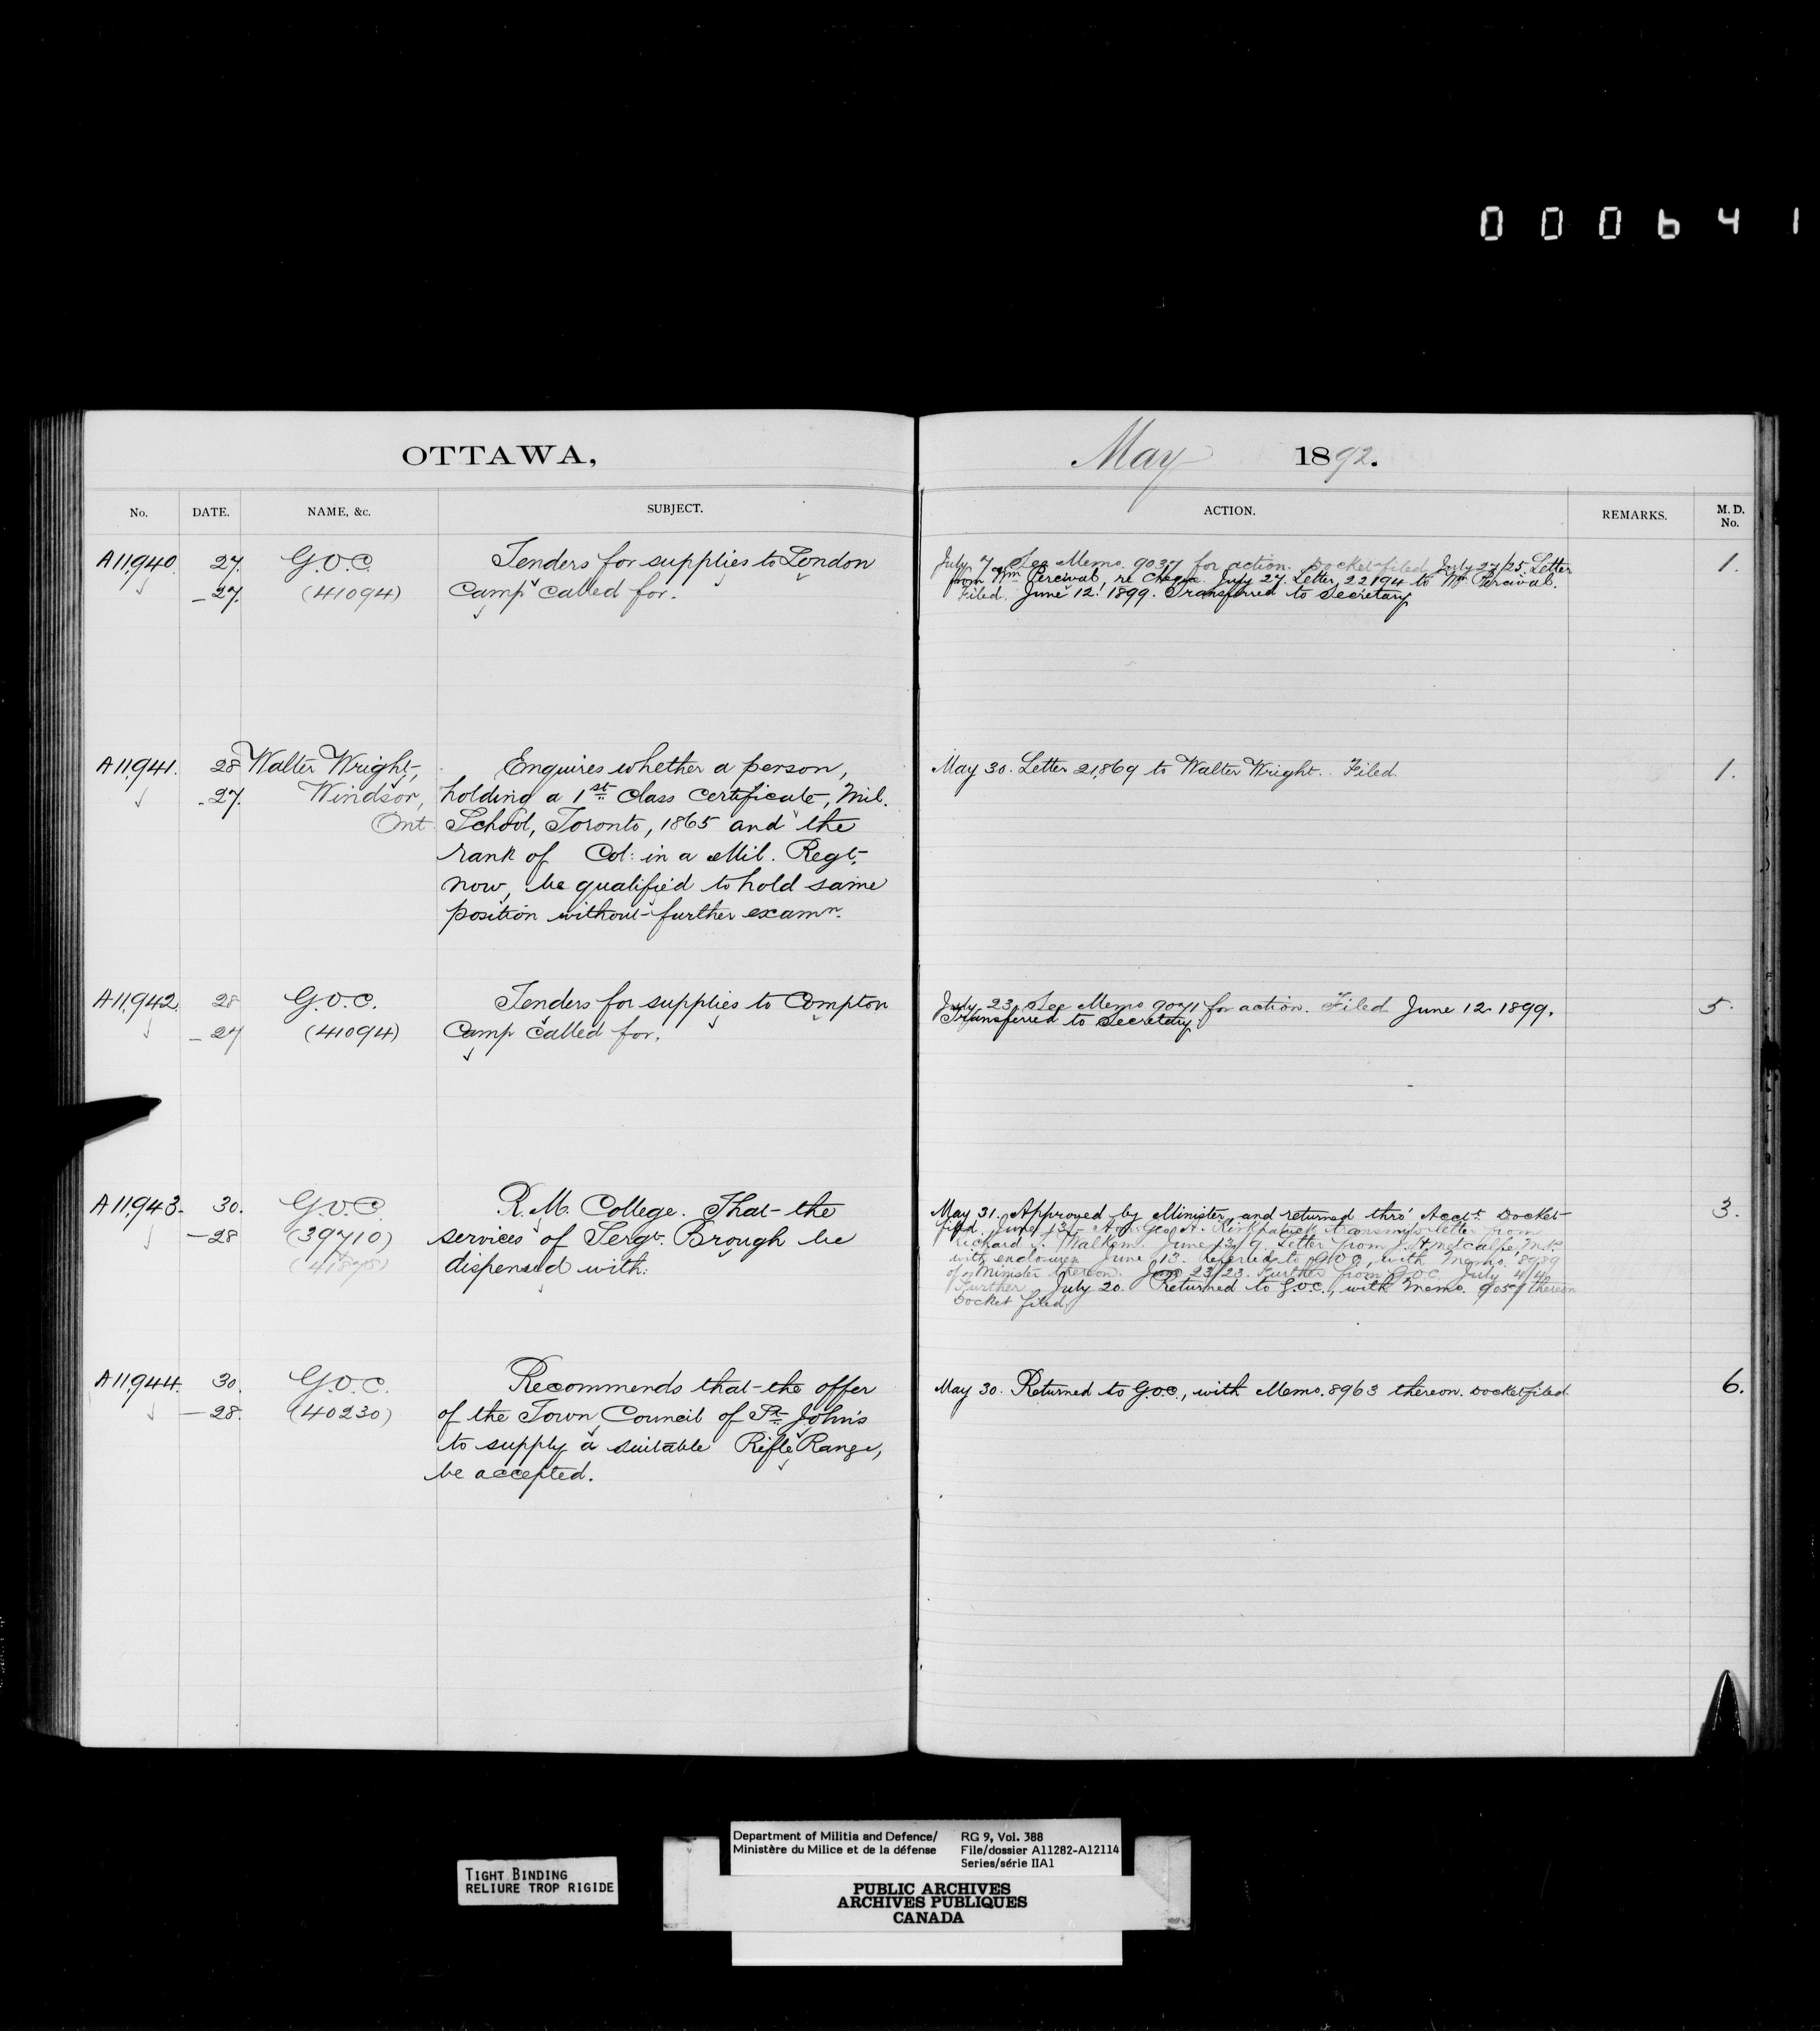 000641
OTTAWA,
May 1892.
No. DATE. NAME, &c. SUBJECT. ACTION. REMARKS. M. D. No.
A11,940. 27. G.O.C. Tenders for supplies to London
-27. (41094) Camp called for.
July 7 See Memo. 9037 for action. Docket filed July 27/25. Letter
from Wm Percival, re Cheque. July 27. Letter, 22194 to Mr. Percival.
Filed. June 12. 1899. Transferred to Secretary
1.
A11,941. 28 Walter Wright, Enquires whether a person,
-27. Windsor, holding a 1st Class Certificate, Mil.
Ont. School, Toronto, 1865 and the
rank of Col: in a Mil. Regt.
now, be qualified to hold same
position without further examn.
May 30. Letter 21,869 to Walter Wright. Filed.
1.
A11,942. 28 G.O.C. Tenders for supplies to Compton
-27 (41094) Camp called for.
July 23. See Memo 9071 for action. Filed June 12. 1899.
Transferred to Secretary
5.
A11,943. 30. G.O.C. R. M. College. That the
-28 (39710) services of Sergt. Brough be
dispensed with.
May 31. Approved by Minister, and returned thro' Acct. Docket
filed. June 13. Hon. Geo. A. Kirkpatrick transmits letter from
Richard T. Walkem. June 13/9. Letter from J. H. Metcalfe, M.P.
with enclosures June 13. Referred to G.O.C., with Memo. 8989
of Minister thereon. June 23/23. Further from G.O.C. July 4/4
Further. July 20. Returned to G.O.C., with Memo. thereon
Docket filed
3.
A11,944. 30. G.O.C. Recommends that the offer
-28. (40230) of the Town Council of St. John's
to supply a suitable Rifle Range,
be accepted.
May 30. Returned to G.O.C., with Memo. 8963 thereon. Docket filed
6.
TIGHT BINDING
RELIURE TROP RIGIDE
Department of Militia and Defence/ RG 9, Vol. 388
Ministère du Milice et de la défense File/dossier A11282-A12114
Series/série IIA1
PUBLIC ARCHIVES
ARCHIVES PUBLIQUES
CANADA